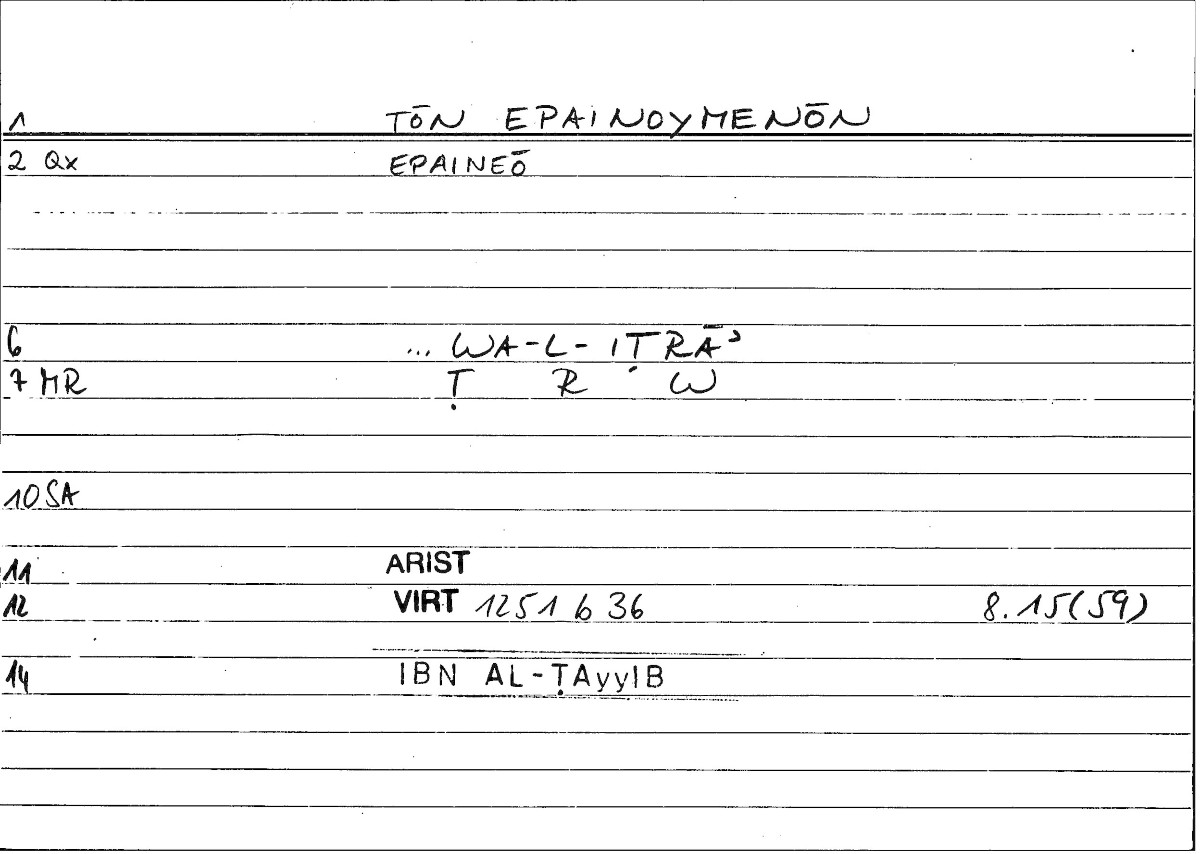 1 TŌN EPAINOYMENŌN
2 Qx EPAINEŌ
6 ... WA-L-IṬRĀʾ
7 MR Ṭ R W
10 SA
11 ARIST
12 VIRT 1251 b 36 8.15(59)
14 IBN AL-ṬAyyIB